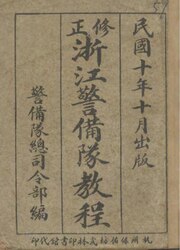 民國十年十月出版
修正浙江警備隊教程
警備隊總司令部編
杭州保佑坊文林印書館代印